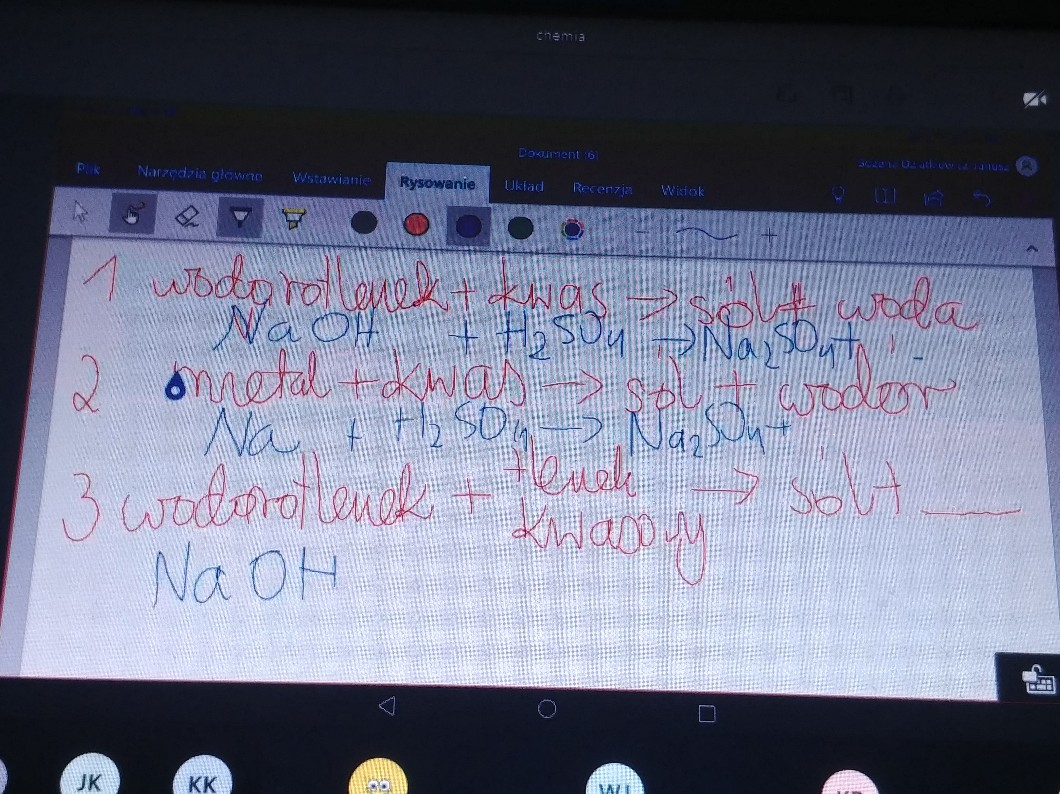 chemia
Dokument (6)
Plik Narzędzia główne Wstawianie Rysowanie Układ Recenzja Widok
1 wodorotlenek + kwas → sól + woda
NaOH + H₂SO₄ → Na₂SO₄ +
2 metal + kwas → sól + wodór
Na + H₂SO₄ → Na₂SO₄ +
3 wodorotlenek + tlenek kwasowy → sól + ___
NaOH
JK KK WJ